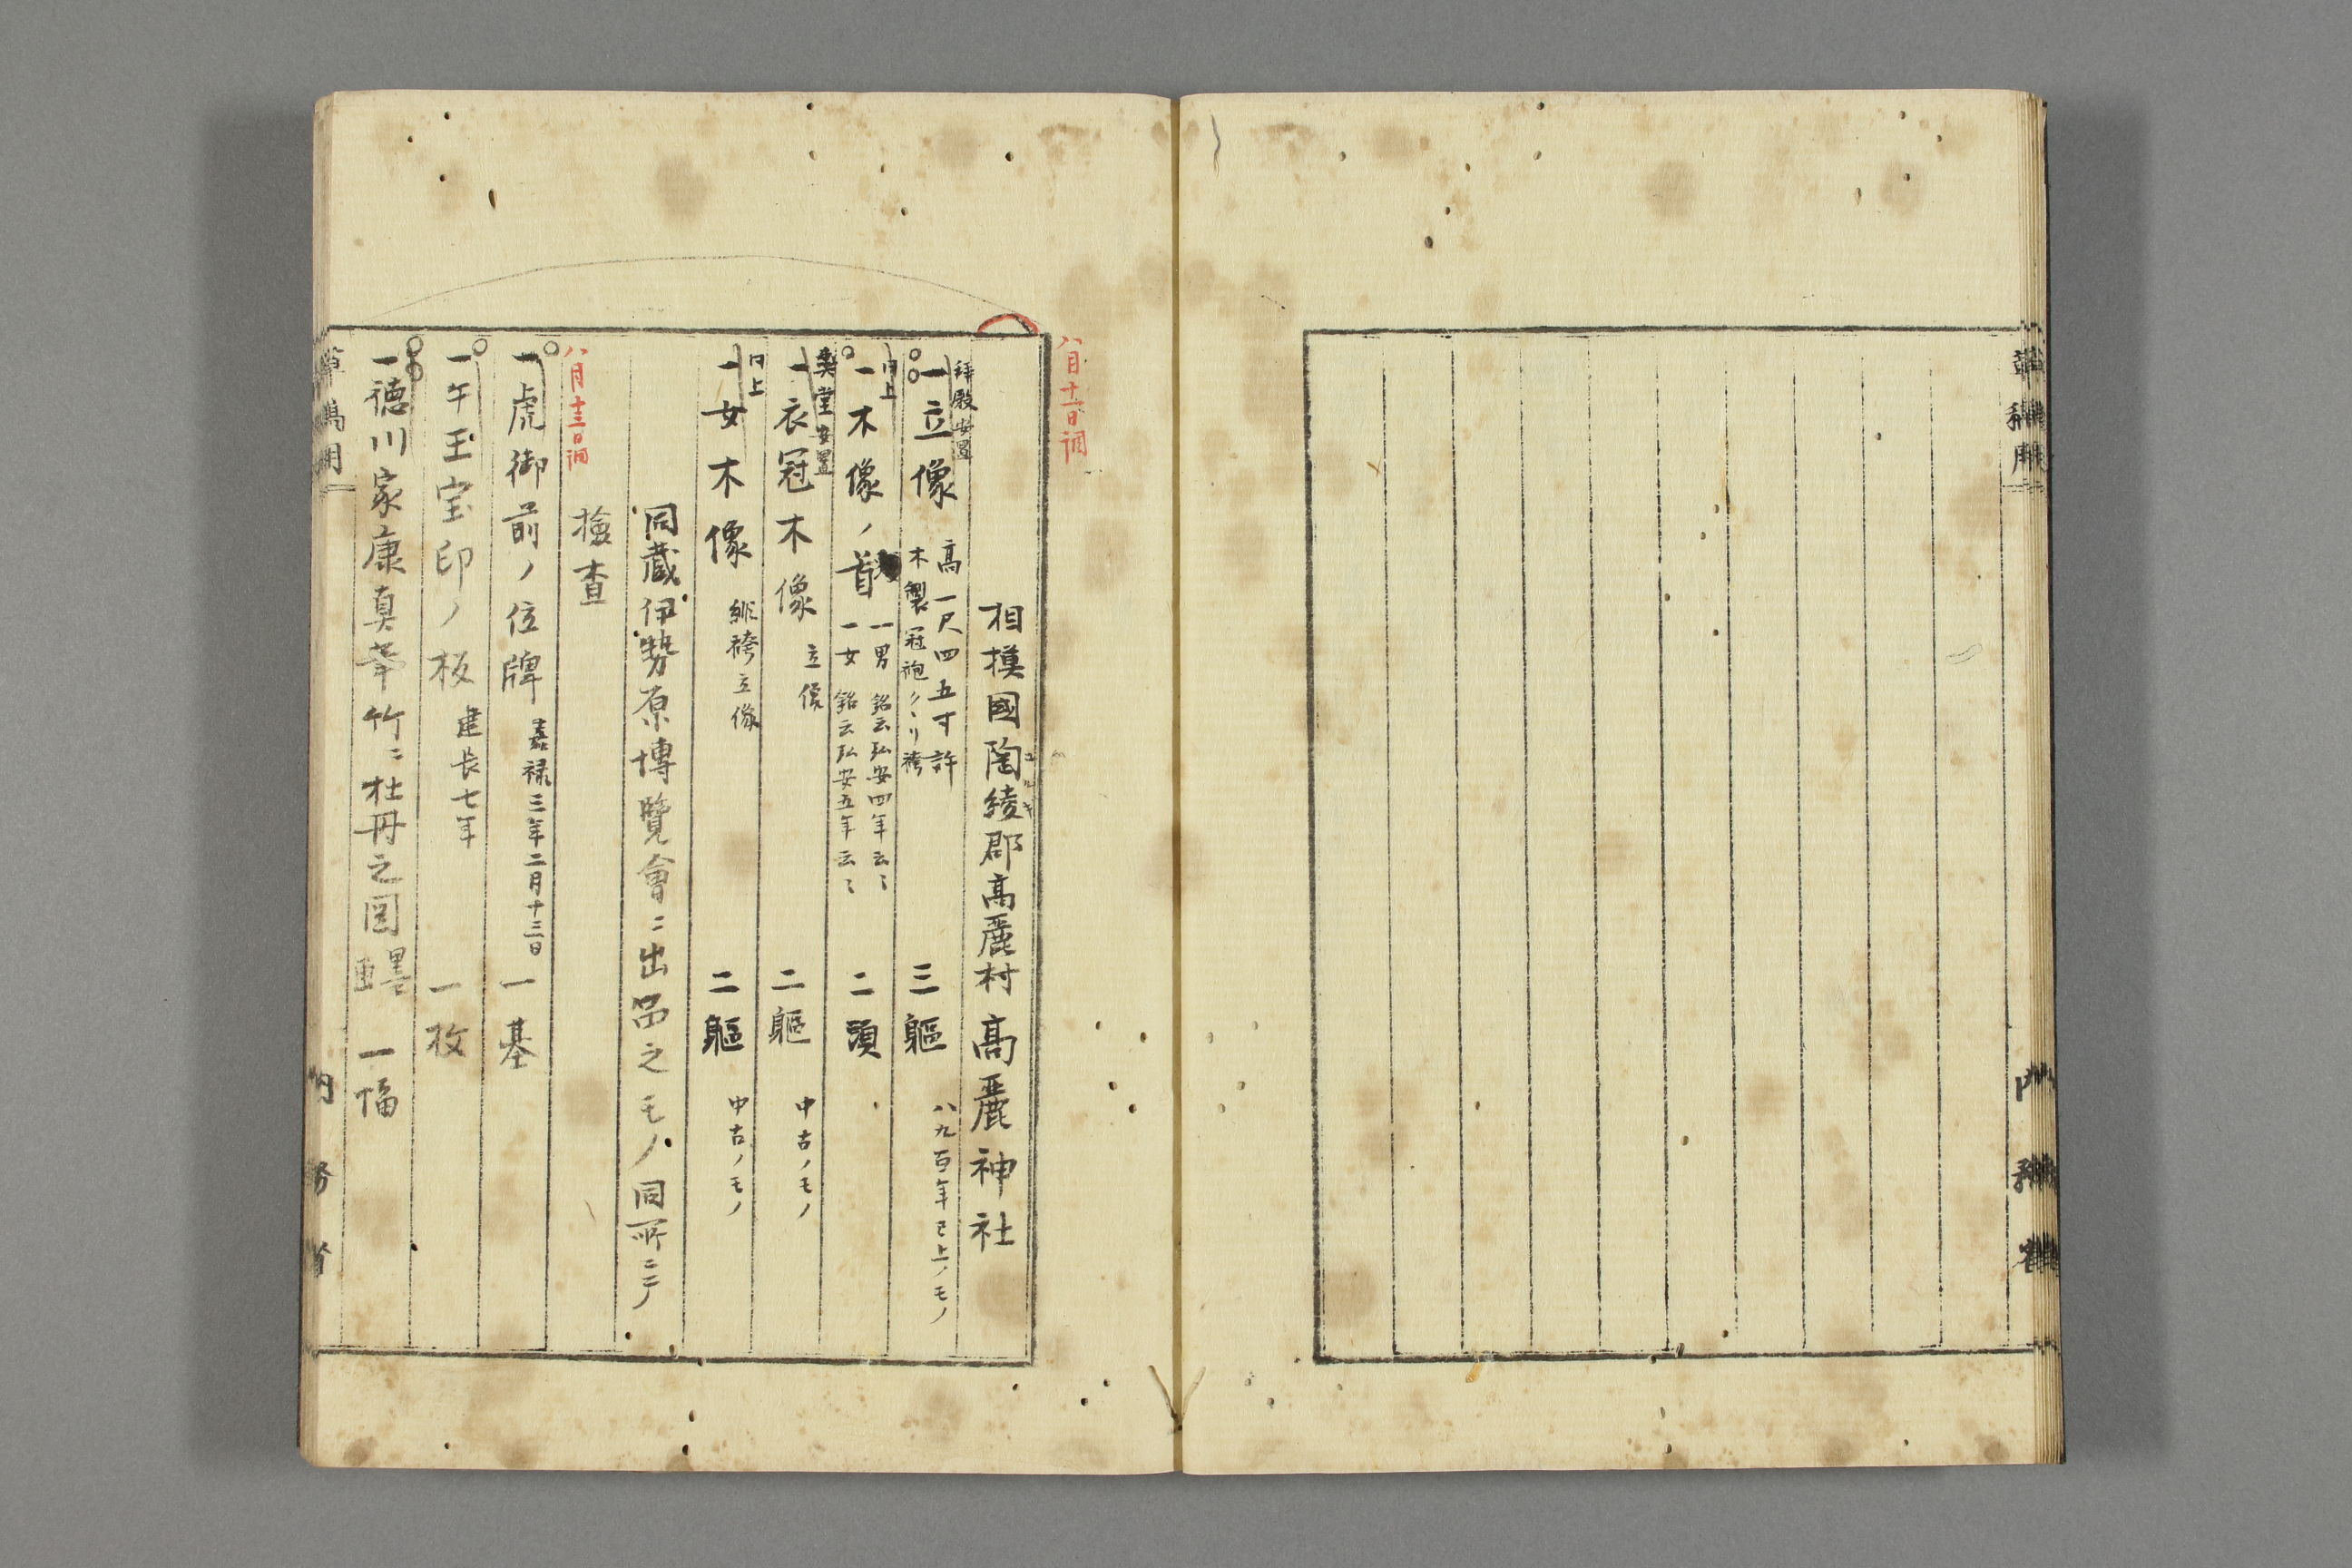 八月十二日調
相摸國陶綾郡高麗村高麗神社
拜殿安置
一立像 高一尺四五寸許 三軀 八九百年已上ノモノ
木製冠袍クヽリ袴
同上
一木像ノ首 一男 銘云弘安四年云〻 二頭
一女 銘云弘安五年云〻
奥堂安置
一衣冠木像 立像 二軀 中古ノモノ
同上
一女木像 緋袴立像 二軀 中古ノモノ
同蔵伊勢原博覽會ニ出品之モノ同所ニテ
檢査
八月十三日調
一虎御前ノ位牌 嘉禄三年二月十三日 一基
一午玉宝印ノ板 建長七年 一枚
一徳川家康真筆竹ニ牡丹之図 墨画 一幅
草稿用
内務省